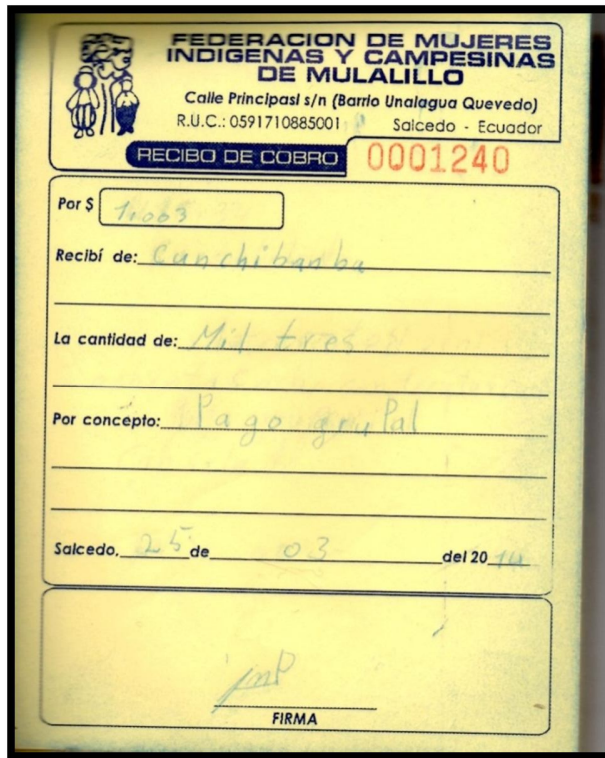 FEDERACION DE MUJERES
INDIGENAS Y CAMPESINAS
DE MULALILLO
Calle Principasl s/n (Barrio Unalagua Quevedo)
R.U.C.: 0591710885001 Salcedo - Ecuador
RECIBO DE COBRO 0001240
Por $ 1.003
Recibí de: Cunchibanba
La cantidad de: Mil tres
Por concepto: Pago gruPal
Salcedo, 25 de 03 del 20 14
FIRMA